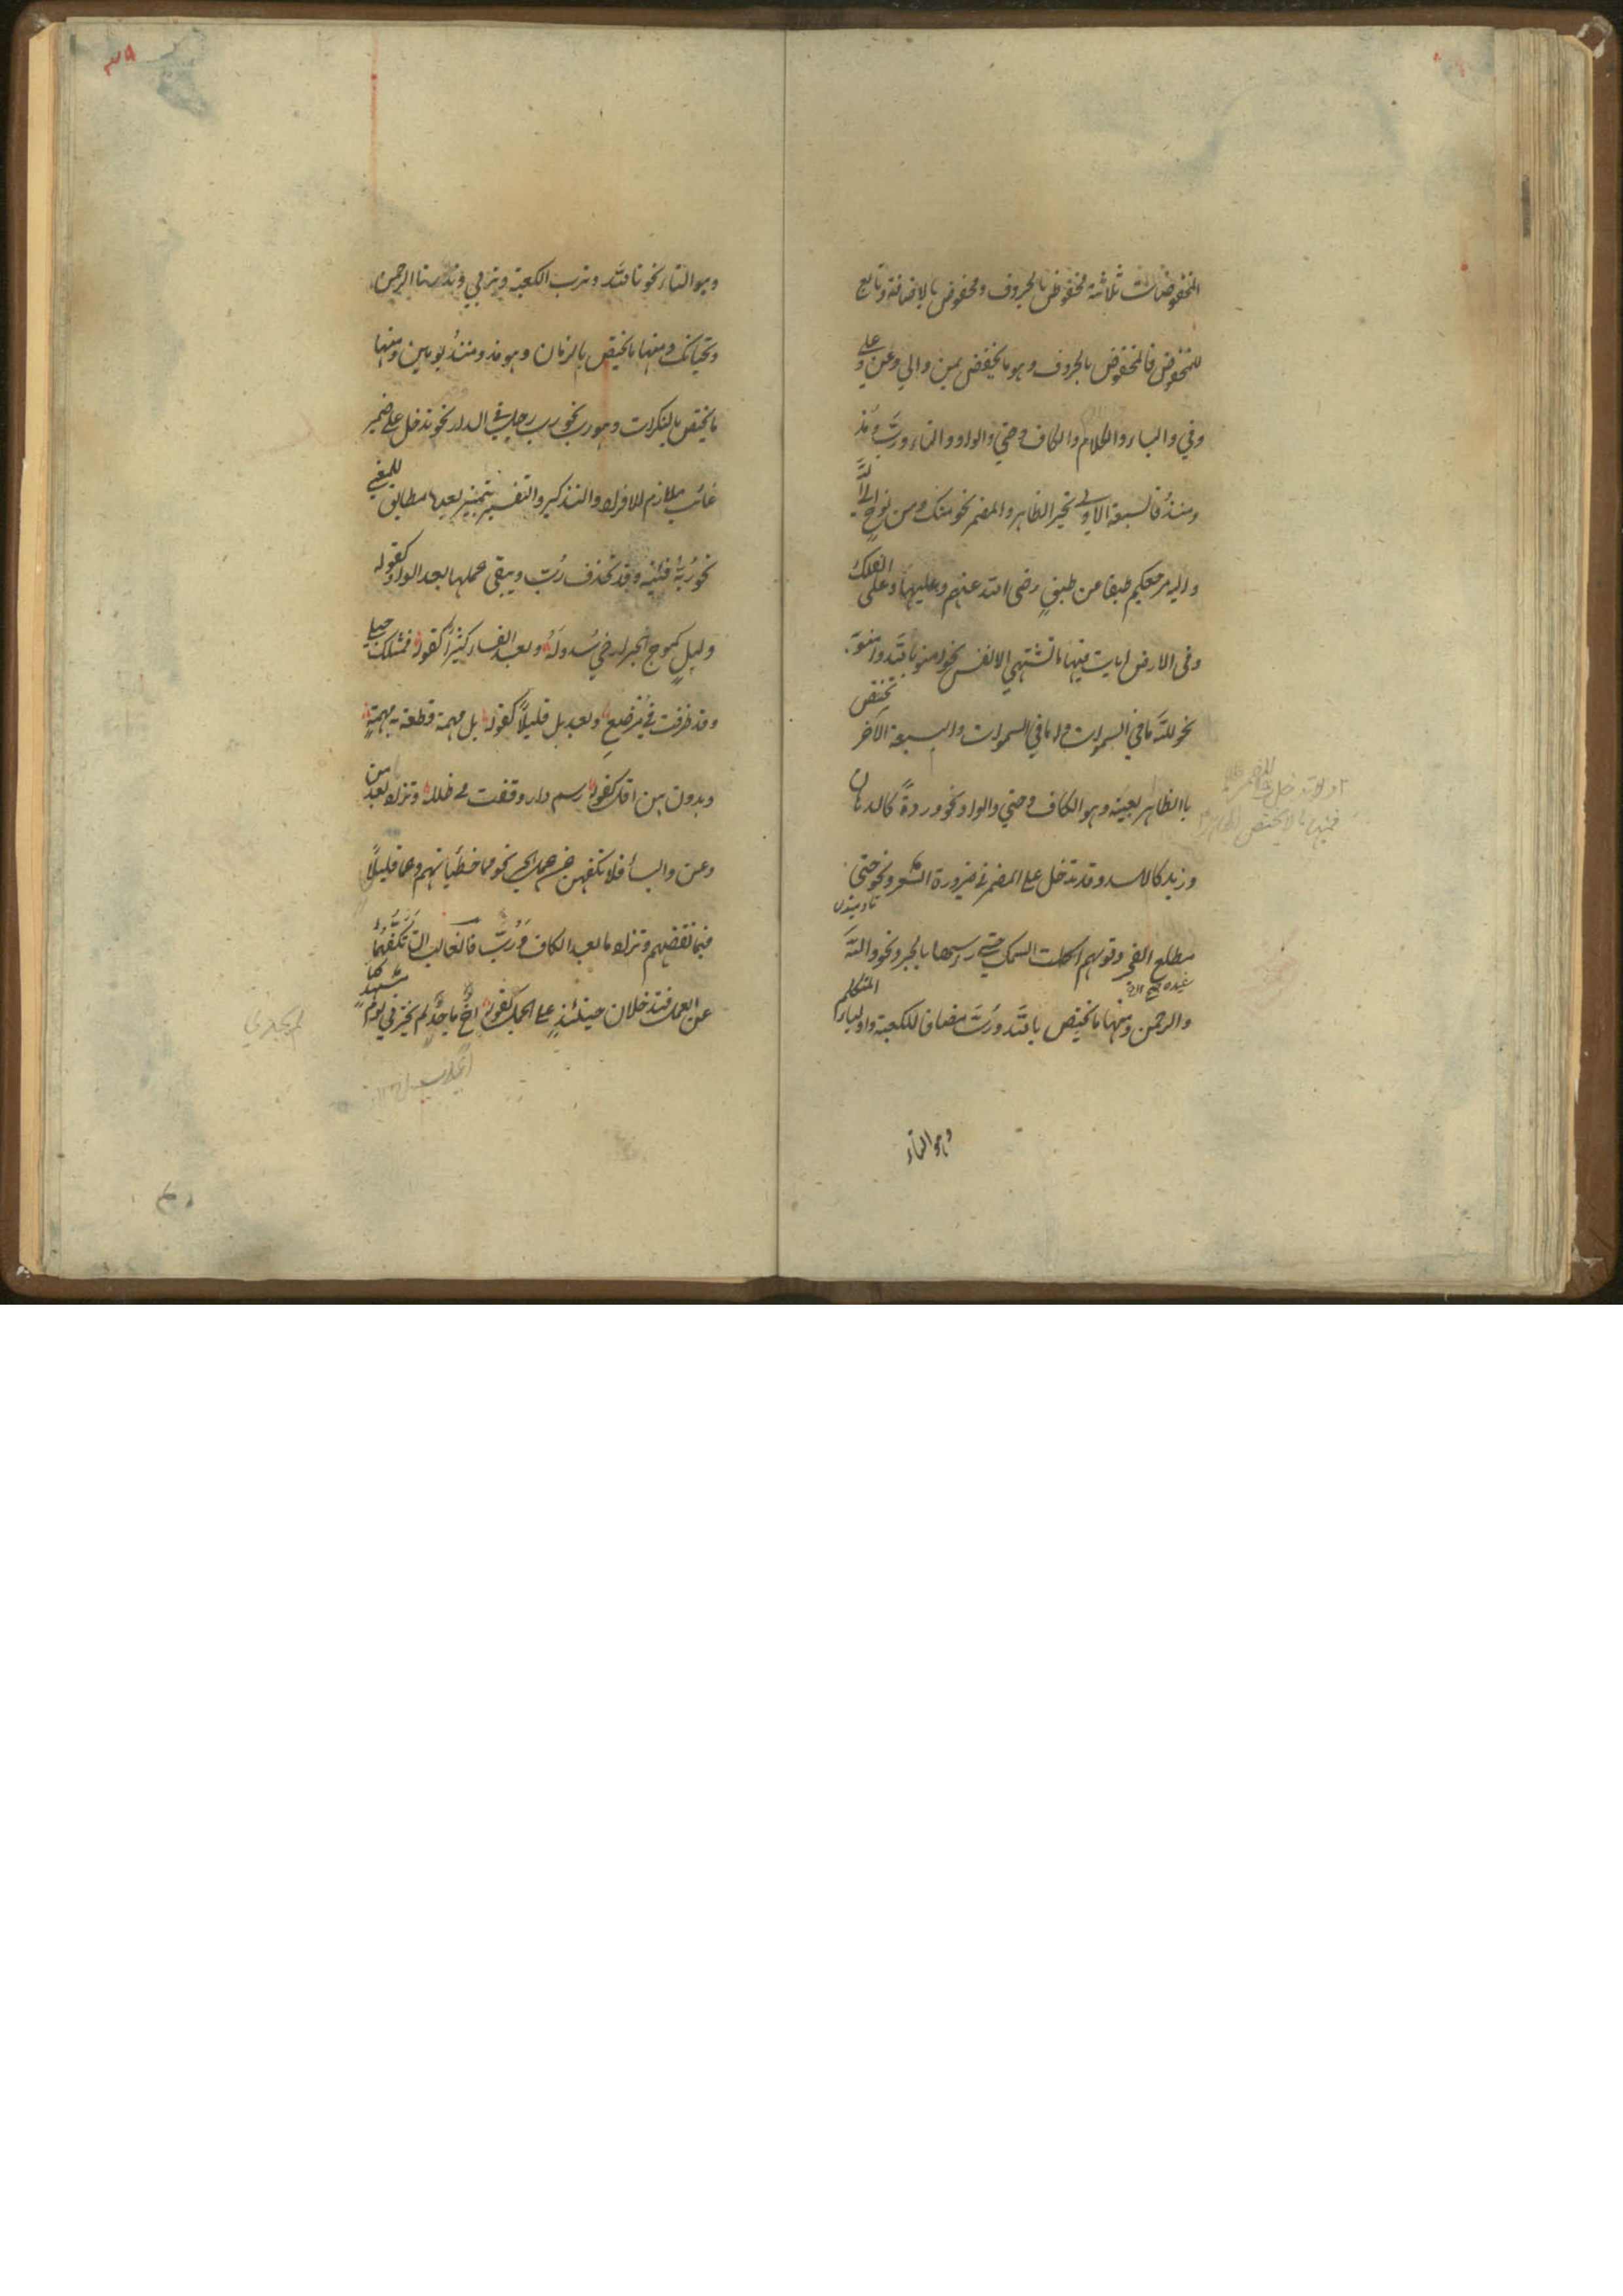 المخفوضات ثلاثة مخفوض بالحروف ومخفوض بالاضافة وتابع
للمخفوض فالمخفوض بالحروف وهو ما يخفض بمن والي وعن وعلي و
وفي والباء واللام والكاف وحتي والواو والتاء ورب ومذ
ومنذ فالسبعة الاولي تجر الظاهر والمضمر نحو منك ومن نوح الي الله
واليه مرجعكم طبقا عن طبق رضي الله عنهم وعليها وعلى الفلك
وفي الارض ايات فيها ما تشتهي الانفس نحو امنو بالله وامنو به
نحو لله ما في السموات وله ما في السموات والسبعة الآخر تختص
باالظاهر بعينه وهو الكاف وحتي والواو نحو وردة كالدهان
وزيد كالاسد وقد تدخل على المضمر في ضرورة الشعر ونحو حتى
مطلع الفجر وقولهم اكلت السمك حتى رأسها بالجر ونحو والله
والرحمن ومنها ما يختص بالله ورب مضافا للكعبة او لياء المتكلم
وهو التاء
وهو التاء نحو تالله وترب الكعبة وتربي وندر تا الرحمن
وتحياتك ومنها ما يختص بالزمان وهو مذ ومنذ يومين ومنها
ما يختص بالنكرات وهو رب نحو رب رجل في الدار نحو تدخل على ضمير
غائب ملازم للافراد والتذكير والتفسير بتميز بعدها مطابق للمعني
نحو ربه فتية وقد تحذف رب ويبقى عملها بعد الواو كقوله
وليل كموج البحر ارخي سدوله وبعد الفاء كثيرا كقوله فمثلك حبلي
وقد طرقت في مرضع وبعد بل قليلا كقوله بل مهمة قطعة به مهمة
وبدون بين اقل كقوله رسم دار وقفت في طلله وتزاد بعد من
وعن والباء فلا تكفهن عن عمل الجر نحو مما خطيأتهم وعما قليلا
فبما نقضهم وتزاد ما بعد الكاف ورب فالغالب ان تكفهما
عن العمل فتدخلان حينئذ على الجمل كقوله اخ ماجد لم يخزني يوم مشهد كما